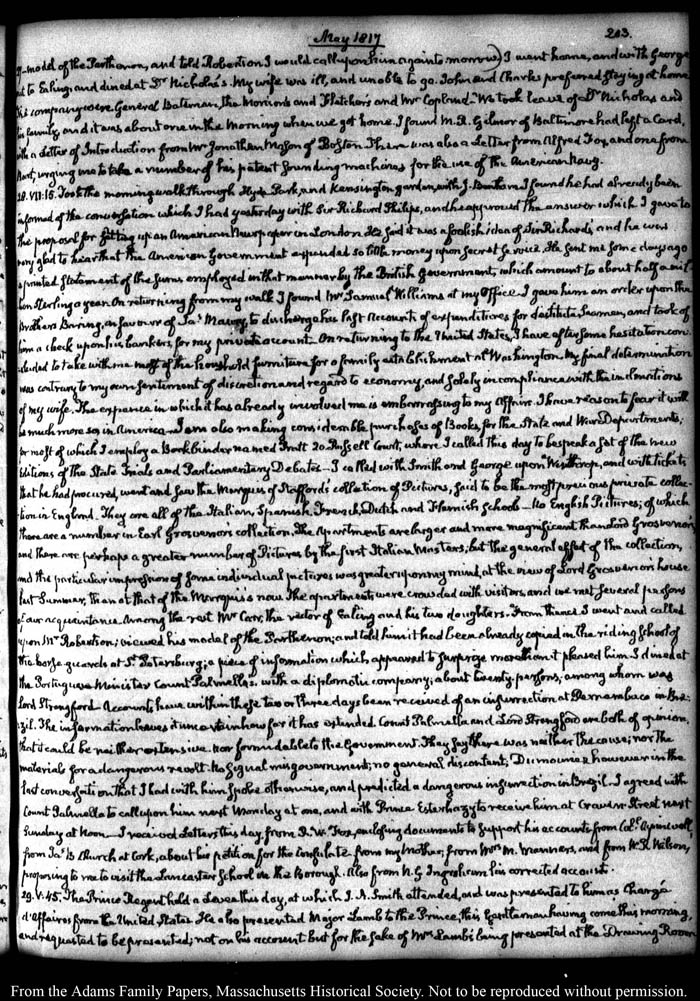 May 1817
203.
model of the Parthenon, and told Robertson I would call upon him again to morrow) I went home, and with George
to Ealing and dined at Dr Nicholas's. My wife was ill, and unable to go. John and Charles preferred staying at home
company were General Bateman, the Morrons and Fletchers and Mr Copland. We took leave of Dr Nicholas and
his family and it was about one in the Morning when we got home. I found Mr R. Gilmor of Baltimore had left a Card,
with a Letter of Introduction from Mr Jonathan Mason of Boston. There was also a Letter from Alfred Fox, and one from
urging me to take a number of his patent sounding machines for the use of the American Navy.
28. VII:15. Took the morning walk through Hyde Park, and Kensington garden, with J. Bentham. I found he had already been
informed of the conversation which I had yesterday with Sir Richard Philips, and he approved the answer which I gave to
the proposal for setting up an American Newspaper in London. He said it was a foolish idea of Sir Richard's, and he was
very glad to hear that the American Government expended so little money upon Secret Service. He sent me some days ago
a printed Statement of the sums employed in that manner by the British Government, which amount to about half a mil-
lion Sterling a year. On returning from my walk I found Mr Samuel Williams at my Office. I gave him an order upon the
Brothers Baring, in favour of Jas Maury, to discharge his last Accounts of expenditures for destitute Seamen, and took of
him a check upon his bankers, for my private account. On returning to the United States, I have after some hesitation con-
cluded to take with me most of the household furniture for a family establishment at Washington. My final determination
was contrary to my own sentiment of discretion and regard to economy, and solely in compliance with the inclinations
of my wife. The expence in which it has already involved me is embarrassing to my Affairs. I have reason to fear it will
be much more so, in America. I am also making considerable purchases of Books, for the State and War Departments;
for most of which I employ a Bookbinder named Pratt 20 Russell Court, where I called this day to bespeak a set of the new
Editions of the State Trials and Parliamentary Debates. I called with Smith and George upon Winthrop, and with tickets
that he had procured, went and saw the Marquis of Stafford's collection of Pictures, said to be the most precious private collec-
tion in England. They are all of the Italian, Spanish, French, Dutch and Flemish Schools. No English Pictures; of which
there are a number in Earl Grosvenor's collection. The Apartments are larger and more magnificent than Lord Grosvenor's
and there are perhaps a greater number of Pictures by the first Italian Masters; but the general effect of the collection,
and the particular impression of some individual pictures was greater upon my mind, at the view of Lord Grosvenor's house
last Summer, than at that of the Marquis's now. The apartments were crowded with visitors, and we met several persons
of our acquaintance. Among the rest Mr Carr, the rector of Ealing and his two daughters. From thence I went and called
upon Mr Robertson; viewed his model of the Parthenon; and told him it had been already copied in the riding School of
the horse guards at St Petersburg; a piece of information which appeared to surprize more than it pleased him. I dined at
the Portuguese Minister Count Palmella's, with a diplomatic company; about twenty persons, among whom was
Lord Strangford. Accounts have within these two or three days been received of an insurrection at Pernambuco in Bra-
zil. The information leaves it uncertain how far it has extended. Count Palmella and Lord Strangford are both of opinion,
that it could be neither extensive nor formidable to the Government. They say there was neither the cause; nor the
materials for a dangerous revolt. No signal misgovernment; no general discontent; however in the
last conversation that I had with him spoke otherwise, and predicted a dangerous insurrection in Brazil. I agreed with
Count Palmella to call upon him next Monday at one, and with Prince Esterhazy to receive him at Craven Street next
Sunday at Noon. I received Letters this day, from R. W. Fox, enclosing documents to support his accounts from Coll. Aspinwall,
from Jas B Church at Cork, about his petition for the Consulate from my Mother, from Mrs M. Manners, and from W. R. Wilson,
proposing to me to visit the Lancaster School in the Borough. Also from N. G. Ingraham his corrected account.
29. V:45. The Prince Regent held a Levee this day, at which J. A. Smith attended, and was presented to him as Chargé
d'Affaires from the United States. He also presented Major Lamb to the Prince; this Gentleman having come this morning,
and requested to be presented; not on his account but for the sake of Mrs Lamb's being presented at the Drawing Room
From the Adams Family Papers, Massachusetts Historical Society. Not to be reproduced without permission.